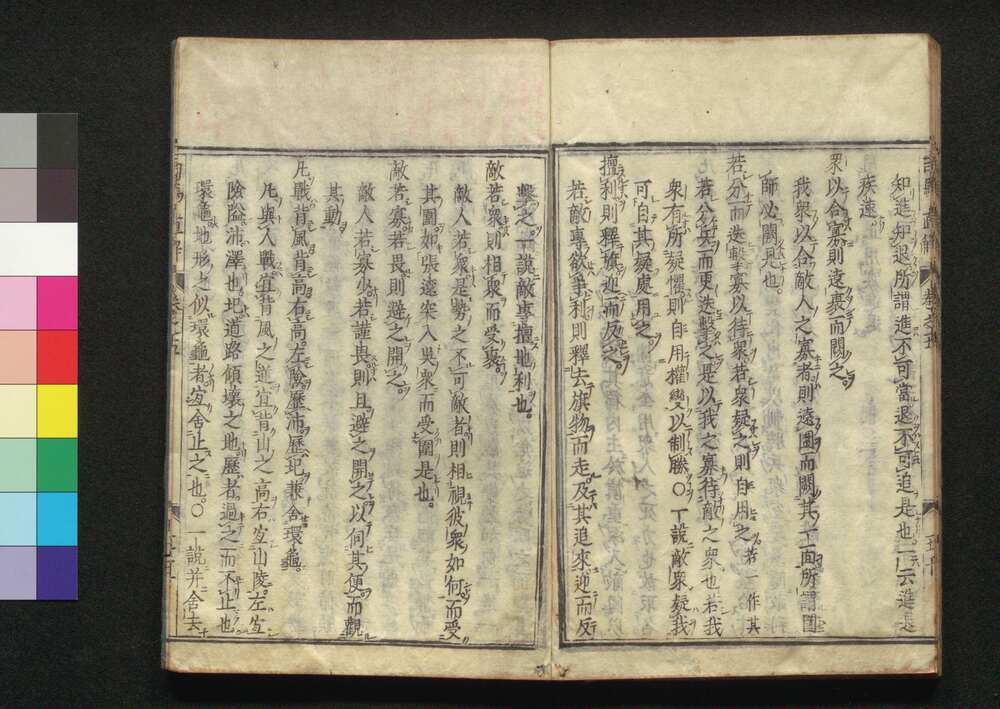 知進知退所謂進不可當退不可追是也一云進退
疾速
衆以合寡則遠裹而闕之
我衆以合敵人之寡者則遠圍而闕其一面所謂圍
師必闕是也
若分而迭擊寡以待衆若衆疑之則自用之 若一作其
若分兵而更迭擊之是以我之寡待敵之衆也若我
衆有所疑懼則自用權變以制勝〇一說敵衆疑我
可自其疑處用之
擅利則釋旗迎而反之
若敵專欲爭利則釋去旗物而走及其追來迎而反
擊之一說敵專擅地利也
敵若衆則相衆而受裹
敵人若衆是勢之不可敵者則相視彼衆如何而受
其圍如張遼突入吳衆而受圍是也
敵若寡若畏則避之開之
敵人若寡少若謹畏則且避之開之以伺其便而觀
其動
凡戰背風背高右高左險歷沛歷圮兼舍環龜
凡與人戰宜背風之道宜背山之高右宜山陵左宜
險隘沛澤也圮道路傾壞之地歷者過之而不止也
環龜地形之似環龜者宜舍止之也〇一說并舍去